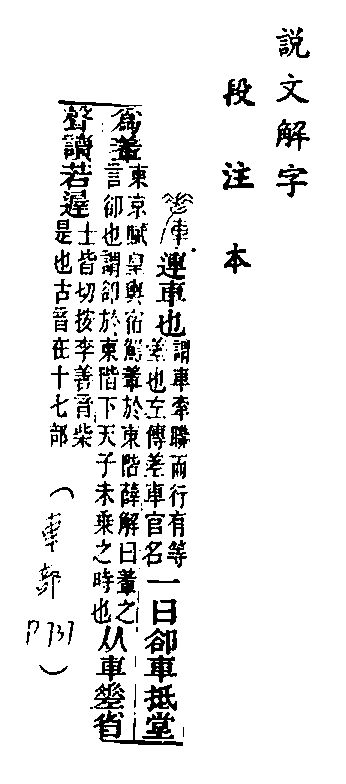 説文解字
段注本
連車也謂車牽聯而行有等
差也左傳差車官名一曰卻車抵堂
爲䡨東京賦皇輿宿駕䡨於東階薛解曰䡨之
言卻也謂卻於東階下天子未乘之時也从車差省
聲讀若遟士皆切按李善音柴
是也古音在十七部
(車部 P737)